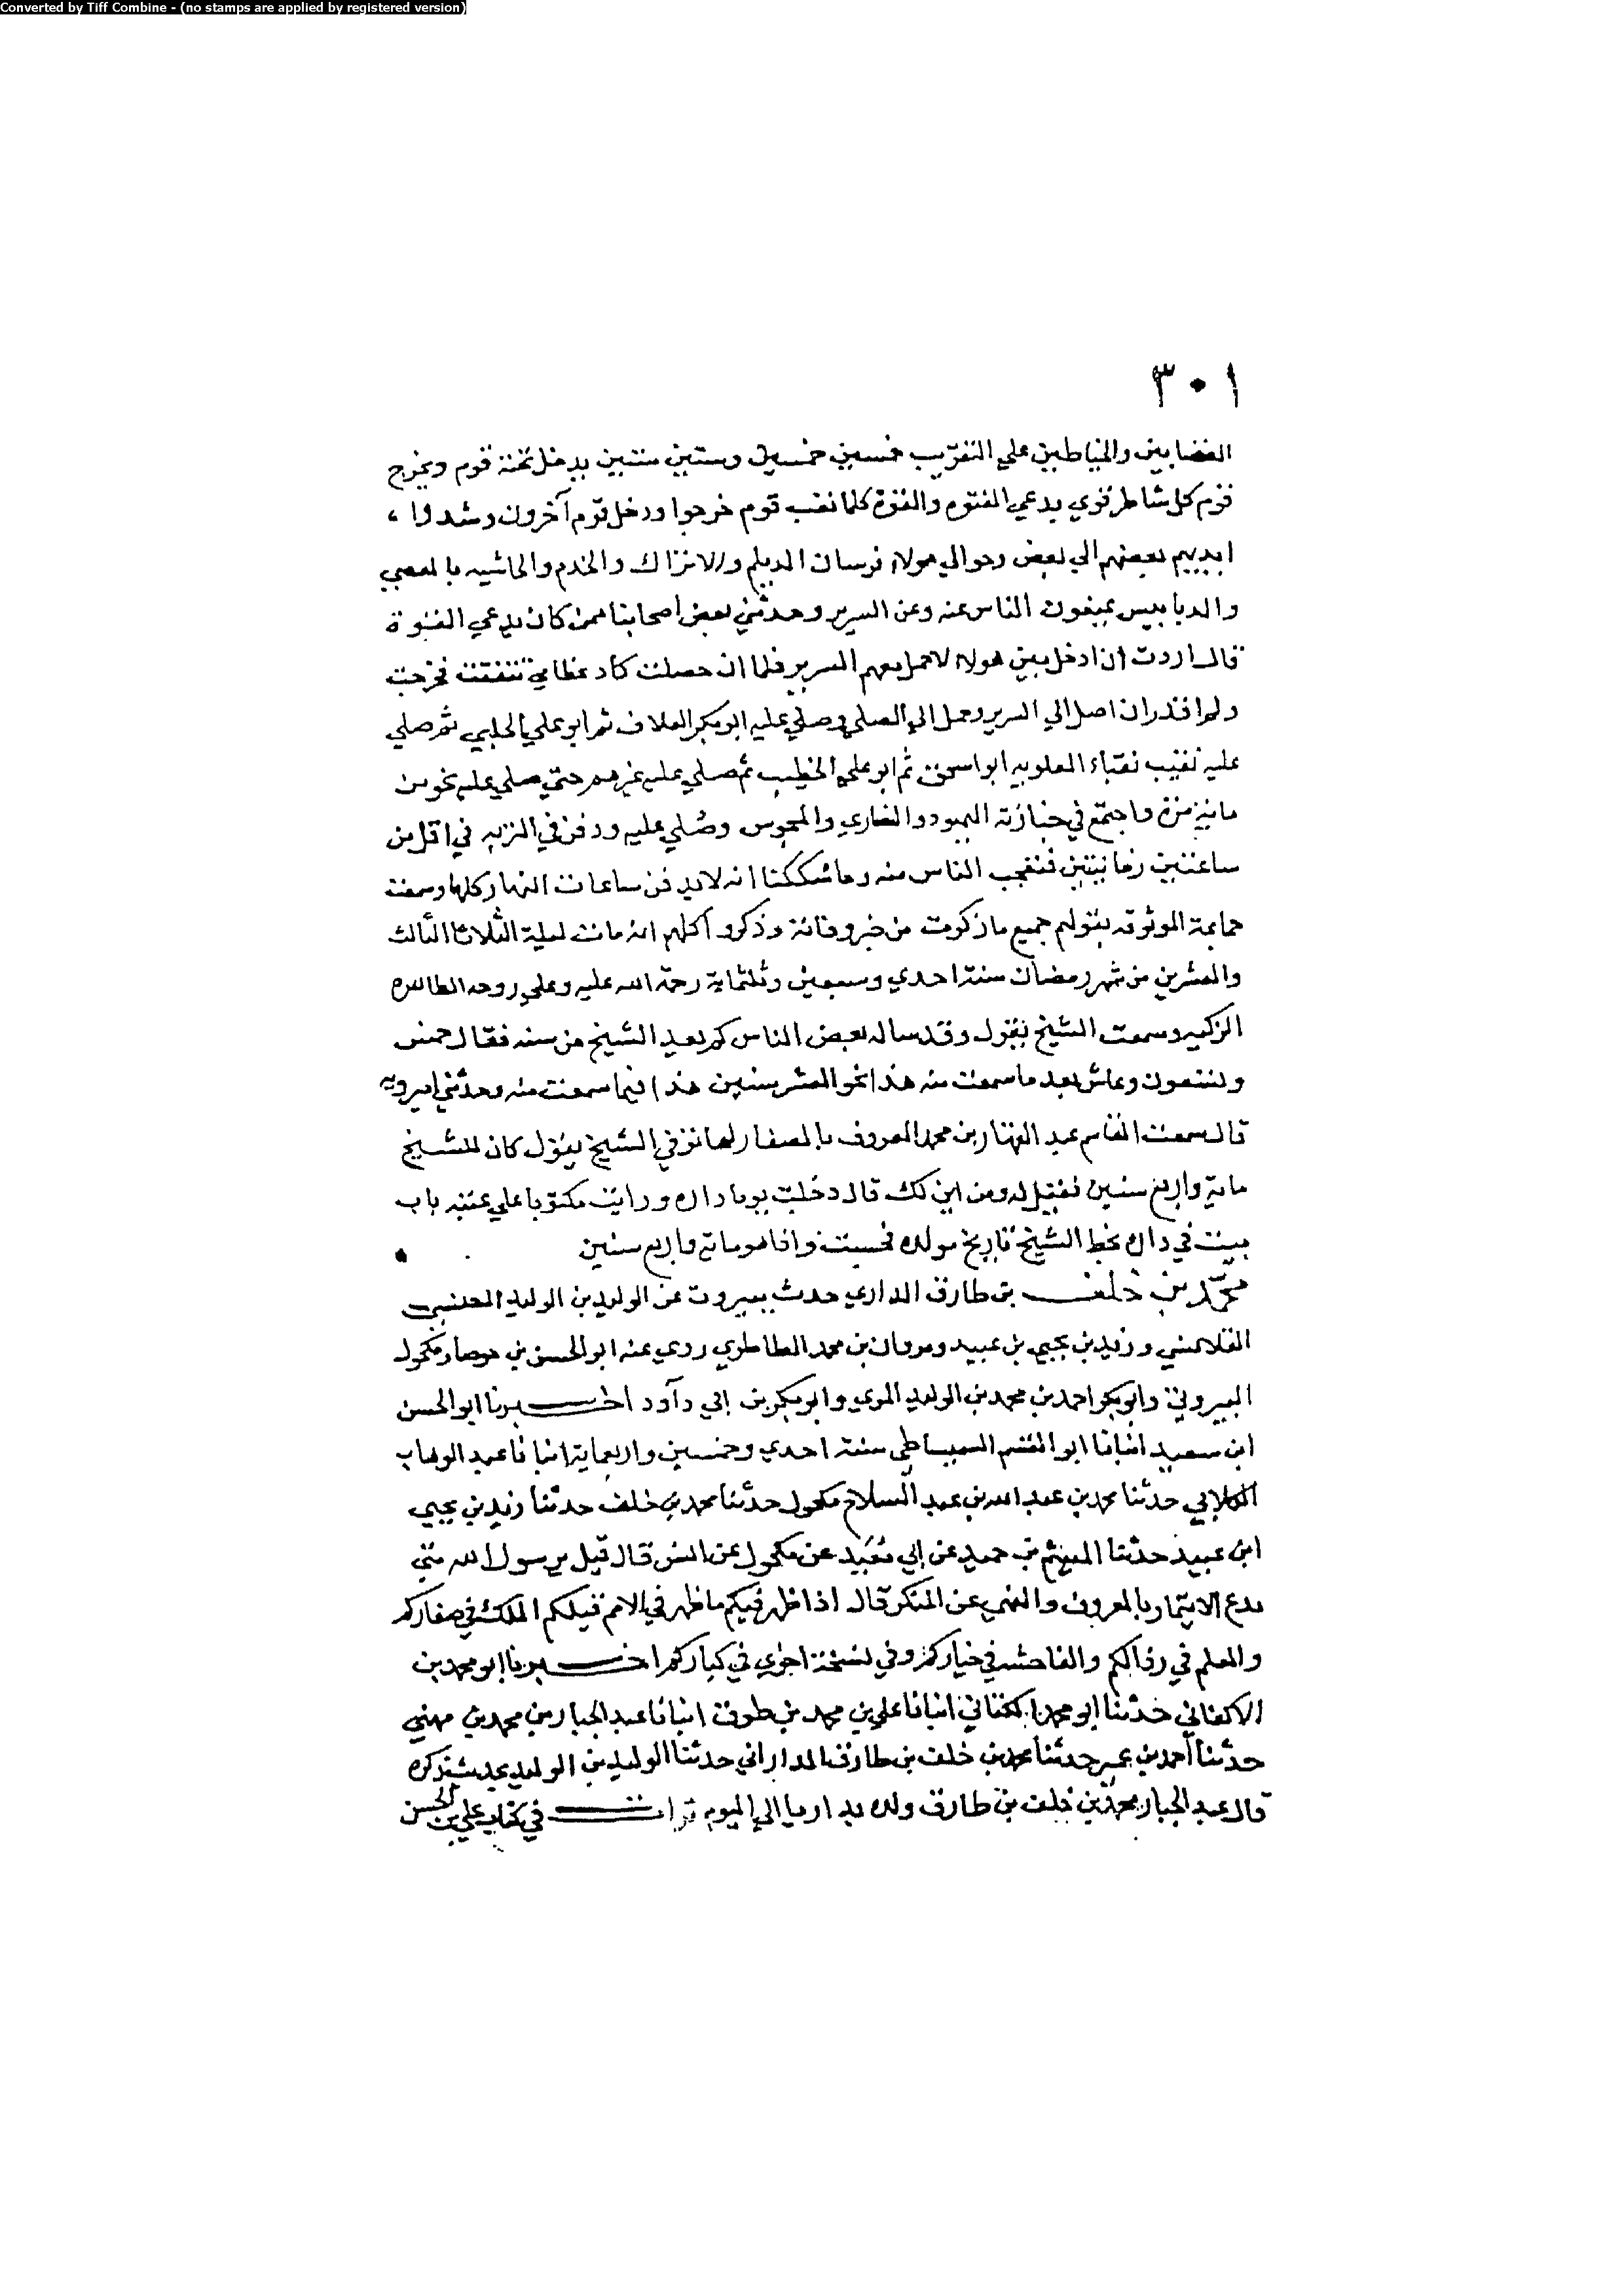 Converted by Tiff Combine - (no stamps are applied by registered version)
٣٠١
القضابين والخياطين علي التقريب خمسين خمسين وستين ستين يدخل تحته قوم ويخرج
قوم كل شاطر قوي يدعي الفتوه والقوة كلما تعب قوم خرجوا ودخل قوم آخرون وشدوا ،
ايديهم بعضهم الي بعض وحوالي هولاء فرسان الديلم والاتراك والخدم والحاشيه بالعصي
والدبابيس يمنعون الناس عنه وعن السرير وحدثني بعض اصحابنا ممن كان يدعي الفتوة
قال اردت ان ادخل بين هولاء لاحمل معهم السرير فلما ان حصلت كاد عظامي تتفتت فخرجت
ولم اقدر ان اصل الي السرير وحمل الي المصلي وصلي عليه ابو بكر العلاف ثم ابو علي الحلبي ثم صلي
عليه نقيب نقباء العلويه ابو اسحق ثم ابو علي الخطيب ثم صلي عليه غيرهم حتي صلي عليه نحو من
ماية مرة واجتمع في جنازته اليهود والنصاري والمجوس وصلي عليه ودفن في التربه في اقل من
ساعتين زمانيتين فتعجب الناس منه وما شككنا انه لا يدفن ساعات النهار كلها وسمعت
جماعة الموثوقه بقولهم جميع ما ذكرت من خبر وفاته وذكروا كلهم انه مات ليلة الثلاثا الثالث
والعشرين من شهر رمضان سنة احدي وسبعين وثلثماية رحمة الله عليه وعلي روحه الطاهره
الزكيه وسمعت الشيخ يقول وقد ساله بعض الناس كم يعد الشيخ من سنه فقال خمس
وتسعون وعاش بعد ما سمعت منه هذا نحو العشر سنين هذا فيما سمعت منه وحدثني
قال سمعت القاسم عبد القهار بن محمد المعروف بالصفار لما توفي الشيخ يقول كان للشيخ
ماية واربع سنين فقيل له ومن اين لك قال دخلت يوما داره ورايت مكتوبا علي عتبه باب
بيت في داره بخط الشيخ تاريخ مولده فحسبت واذا هو ماية واربع سنين
محمد بن خلف بن طارق الداري حدث ببيروت عن الوليد بن الوليد العنسي
القلانسي وزيد بن يحيي بن عبيد ومروان بن محمد الطاطري روي عنه ابو الحسن بن جوصا ومكحول
البيروتي وابو بكر احمد بن محمد بن الوليد المري وابو بكر بن ابي دآود اخبرنا ابو الحسن
ابن سعيد انبانا ابو القسم السميساطي سنة احدي وخمسين واربعماية انبانا عبد الوهاب
الكلابي حدثنا محمد بن عبد الله بن عبد السلام مكحول حدثنا محمد بن خلف حدثنا زيد بن يحيي
ابن عبيد حدثنا الهيثم بن حميد عن ابي معيد عن مكحول عن انس قال قيل يرسول الله متي
ندع الايتمار بالمعروف والنهي عن المنكر قال اذا ظهر فيكم ما ظهر في الامم قبلكم الملك في صغاركم
والعلم في رذالكم والفاحشه في خياركم وفي نسخة اخري في كباركم اخبرنا ابو محمد بن
الاكفاني حدثنا ابو محمد الكتاني انبانا علي بن محمد بن طوق انبانا عبد الجبار بن محمد بن مهني
حدثنا احمد بن عمير حدثنا محمد بن خلف بن طارق الداراني حدثنا الوليد بن الوليد بحديث ذكره
قال عبد الجبار محمد بن خلف بن طارق ولده بداريا الي اليوم قرات في كتاب علي بن الحسن